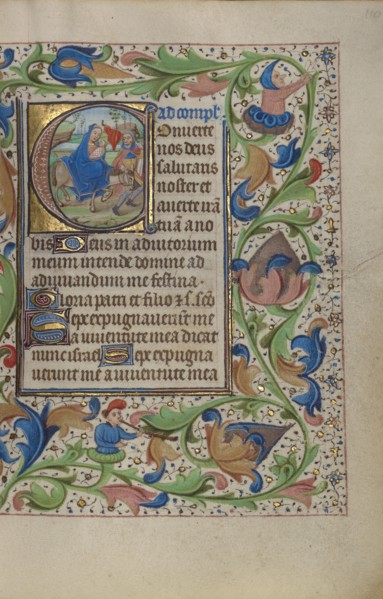 Ad compl'
Onuerte
nos deus
salutaris
noster et
auerte irã
tuã a no
bis Deus in adiutorium
meum intende domine ad
adiuuandum me festina.
Gloria patri et filio & s. sco
Sepe expugnauerunt me
a iuuentute mea dicat
nunc israel Sepe expugna
uerunt me a iuuentute mea